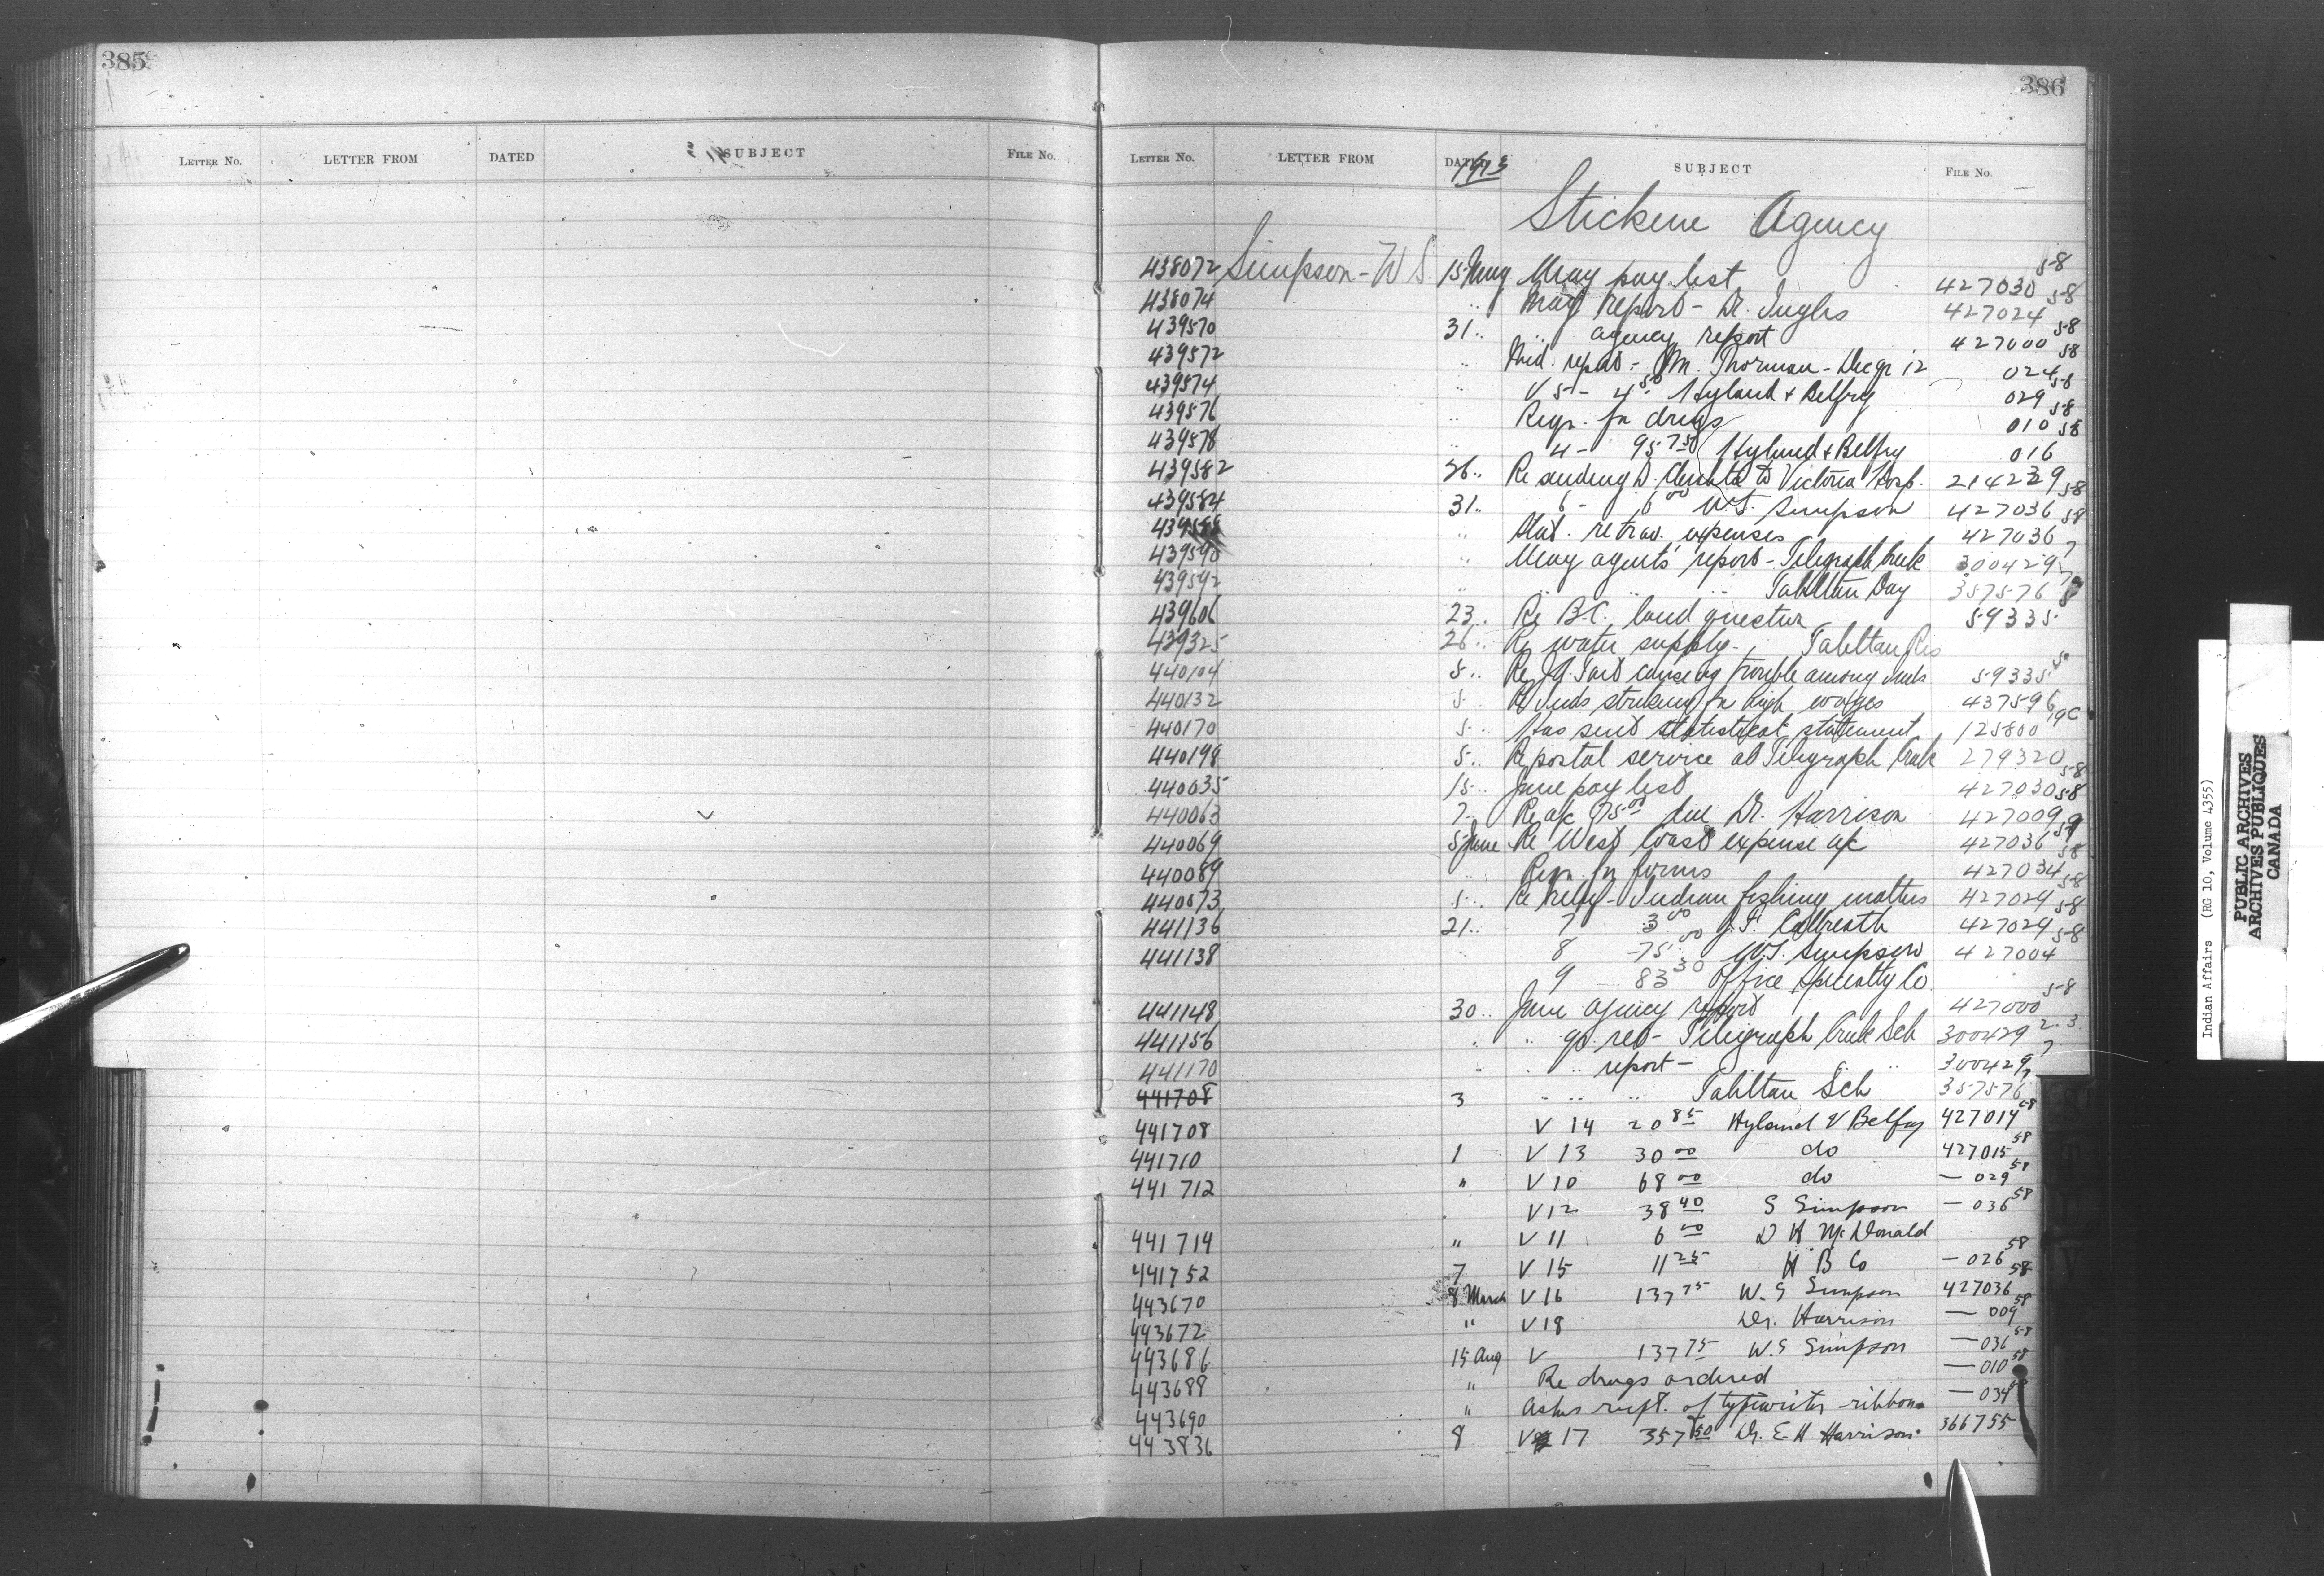 385
386
LETTER NO. LETTER FROM DATED SUBJECT FILE NO.
LETTER NO. LETTER FROM DATED 1913 SUBJECT FILE NO.
Stickene Agency
438072 Simpson - W S. 15 May May pay list 427030 58
438074 " May report - Dr. Inglis 427024 58
439570 31 " " agency report 427000 58
439572 " Med. report - Mr. Thorman - Decr 12 024 58
439574 " V 5 - 4 50 Hyland & Belfry 029 58
439576 " Reqn. for drugs 010 58
439578 " 4 - 957 50 Hyland & Belfry 016 58
439582 26 " Re sending D. to Victoria Hosp. 214229
439584 31 " 6 - 6 00 W.S. Simpson 427036 58
" Stat. re trav. expenses 427036 58
439590 " May agent's report - Telegraph Creek 300429 7
439592 " " " " Tahltan Day 357576 7
439606 23 " Re B.C. land question 59335 8
439325 26 " Re water supply - Tahltan Res
440104 5 " Re J.A. Teit causing trouble among inds 59335
440132 5 " Re Inds striking for high wages 437596
440170 5 " Has sent statistical statement 125800 19C
440198 5 " Re postal service at Telegraph Creek 279320
440035 15 " June pay list 427030 58
440063 7 " Re a/c 75 00 due Dr. Harrison 427009 58
440069 5 June Re West Coast expense a/c 427036 59
440089 " Reqn. for forms 427034 58
440073 5 " Re relief - Indian fishing matters 427029 58
441136 21 " 7 3 00 J.F. Callbreath 427029 58
441138 " 8 75 00 W.S. Simpson 427004 58
9 83 30 Office Specialty Co
441148 30 " June agency report 427000 58
441156 " " qr ret - Telegraph Creek Sch 300429 2-3
441170 " " " report - " " " 300429 7
441708 3 " " " Tahltan Sch 357576 7
441708 V 14 20 85 Hyland & Belfry 427014 58
441710 1 V 13 30 00 do 427015 58
441712 " V 10 68 00 do — 029 58
V 12 38 40 S Simpson — 036 58
441714 " V 11 6 00 D K McDonald
441752 7 V 15 11 25 H B Co — 026 58
443670 8 March V 16 137 75 W. S Simpson 427036 58
443672 " V 18 Dr. Harrison — 009 58
443686 15 Aug V 137 75 W. S Simpson — 036 58
443688 " Re drugs ordered — 010 58
443690 " Asks recpt. of typewriter ribbons — 034
443836 8 V 17 357 50 Dr. E. H Harrison 366755
Indian Affairs (RG 10, Volume 4355)
PUBLIC ARCHIVES
ARCHIVES PUBLIQUES
CANADA